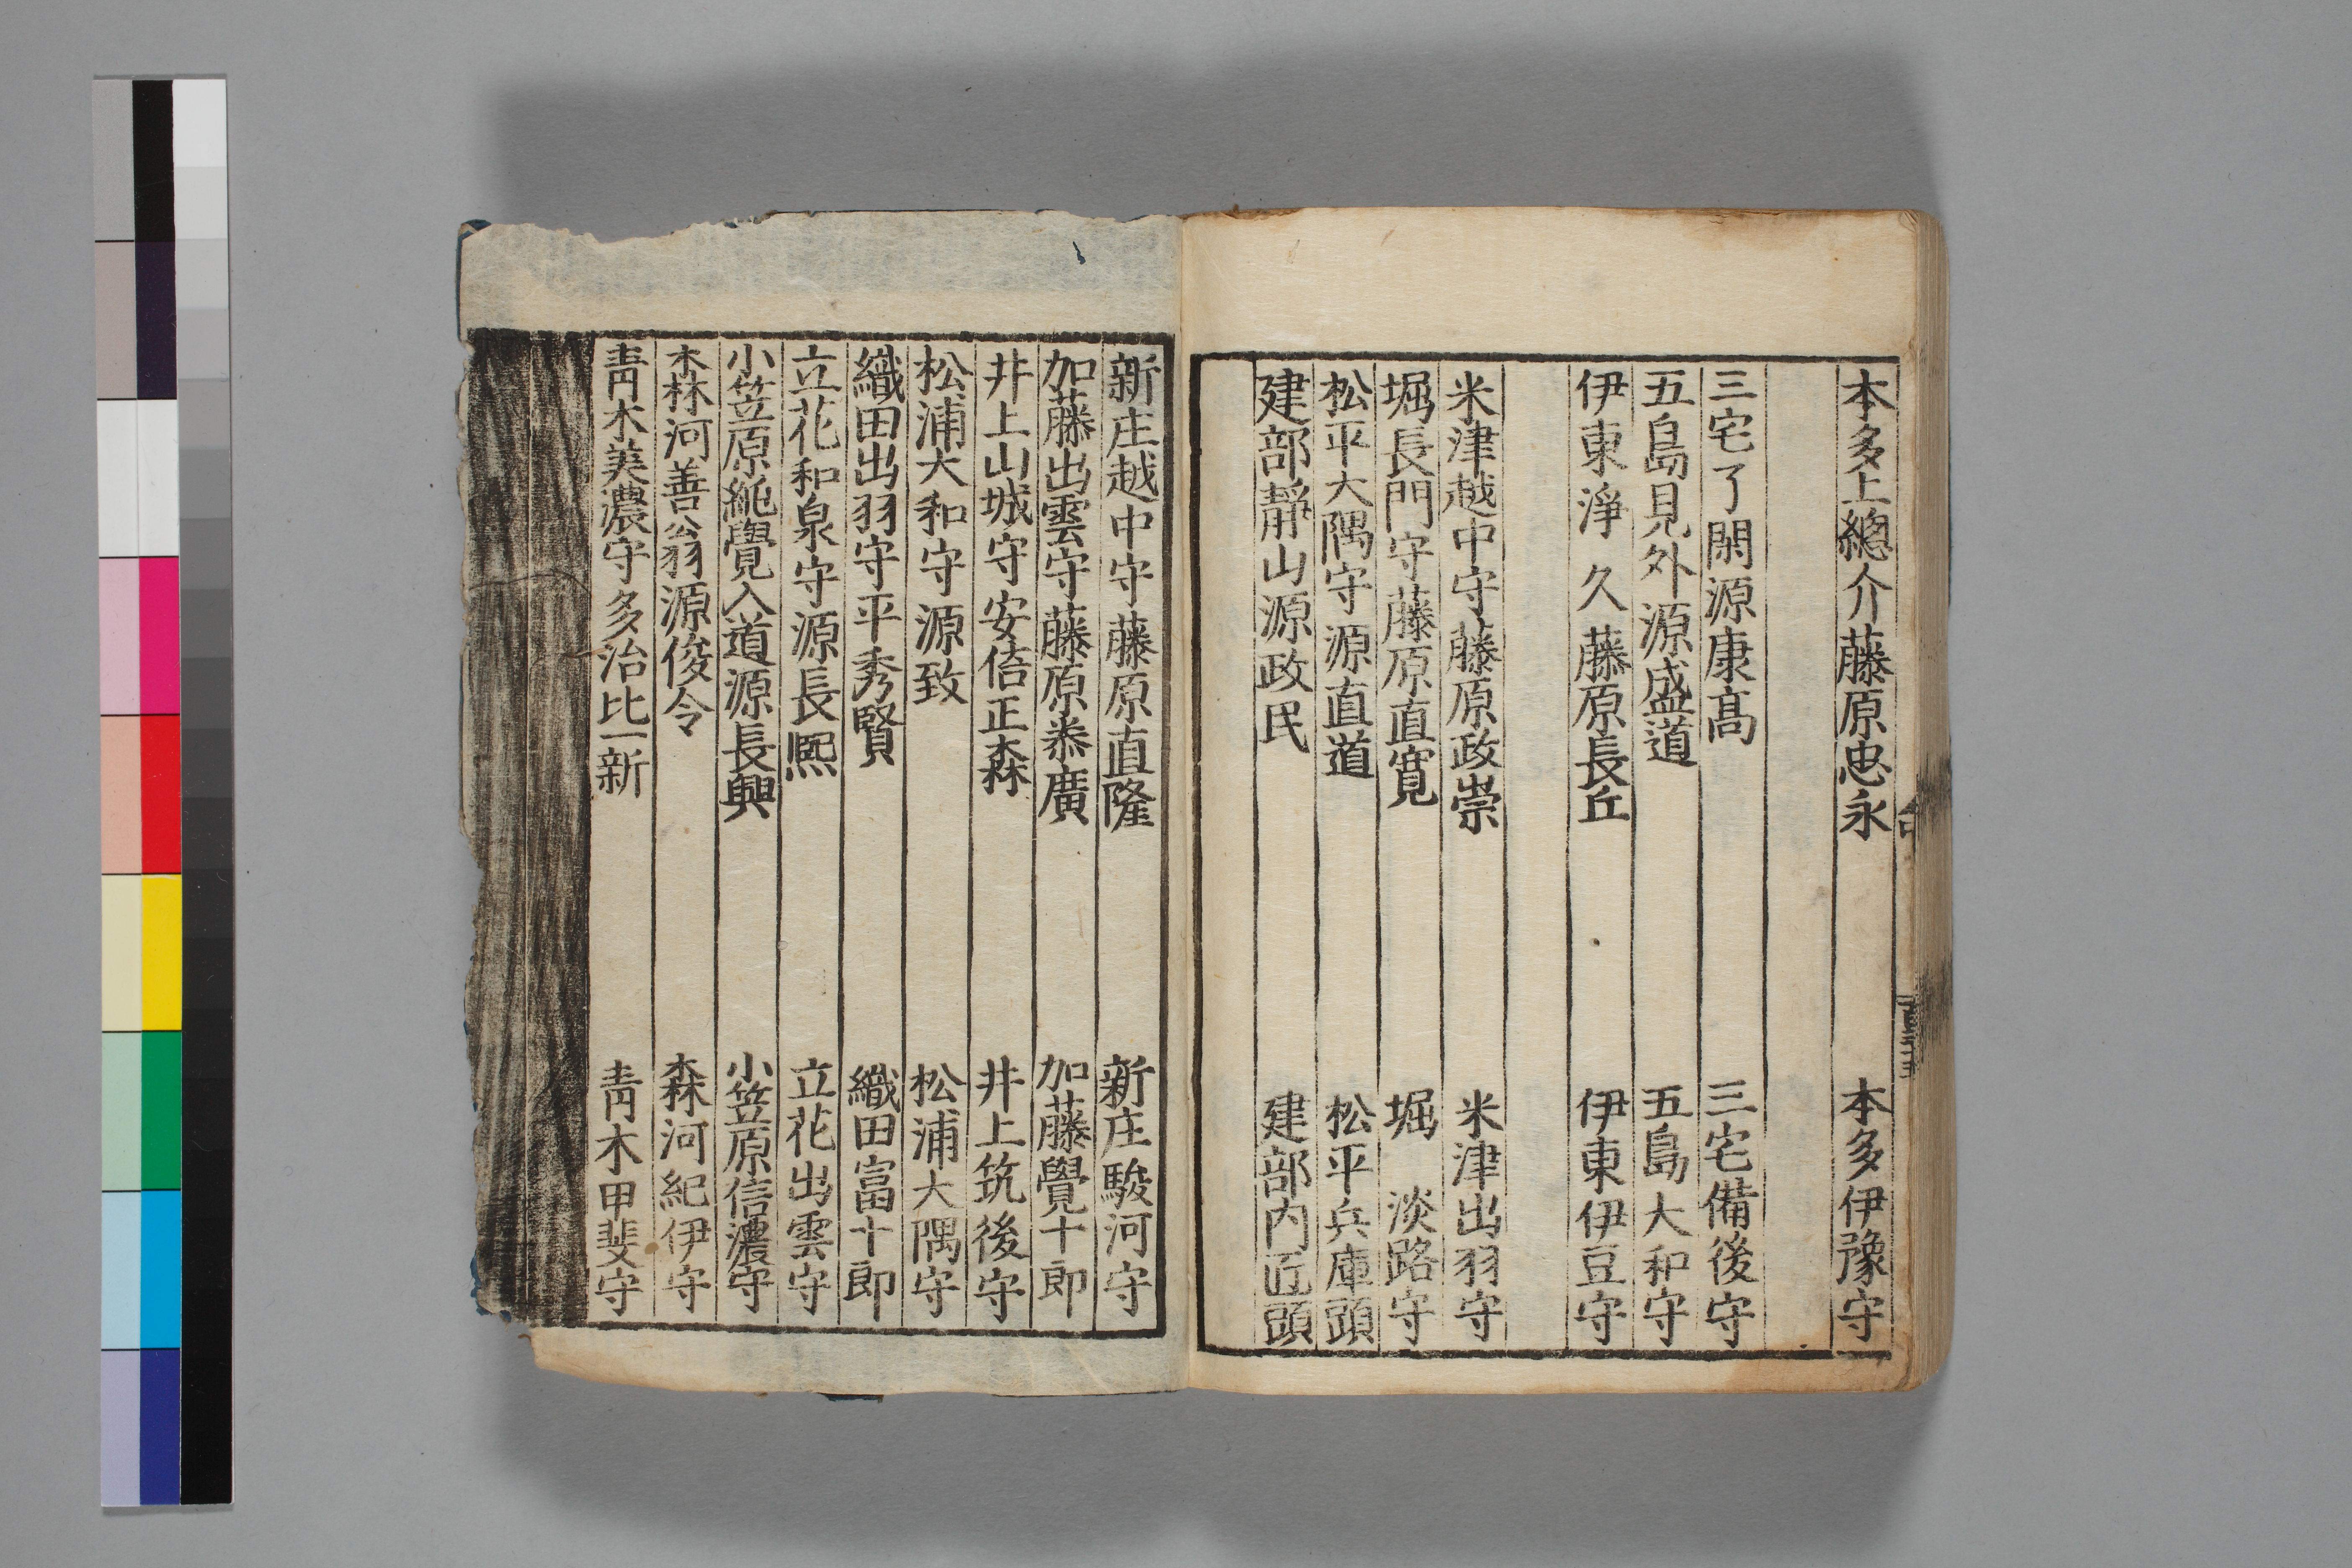 本多上總介藤原忠永 本多伊豫守
三宅了閑源康髙 三宅備後守
五島見外源盛道 五島大和守
伊東淨久藤原長丘 伊東伊豆守
米津越中守藤原政崇 米津出羽守
堀長門守藤原直寛 堀淡路守
松平大隅守源直道 松平兵庫頭
建部靜山源政民 建部内匠頭
新庄越中守藤原直隆 新庄駿河守
加藤出雲守藤原泰廣 加藤覺十郎
井上山城守安倍正森 井上筑後守
松浦大和守源致 松浦大隅守
織田出羽守平秀賢 織田富十郎
立花和泉守源長熈 立花出雲守
小笠原純覺入道源長興 小笠原信濃守
森河善翁源俊令 森河紀伊守
靑木美濃守多治比一新 靑木甲斐守